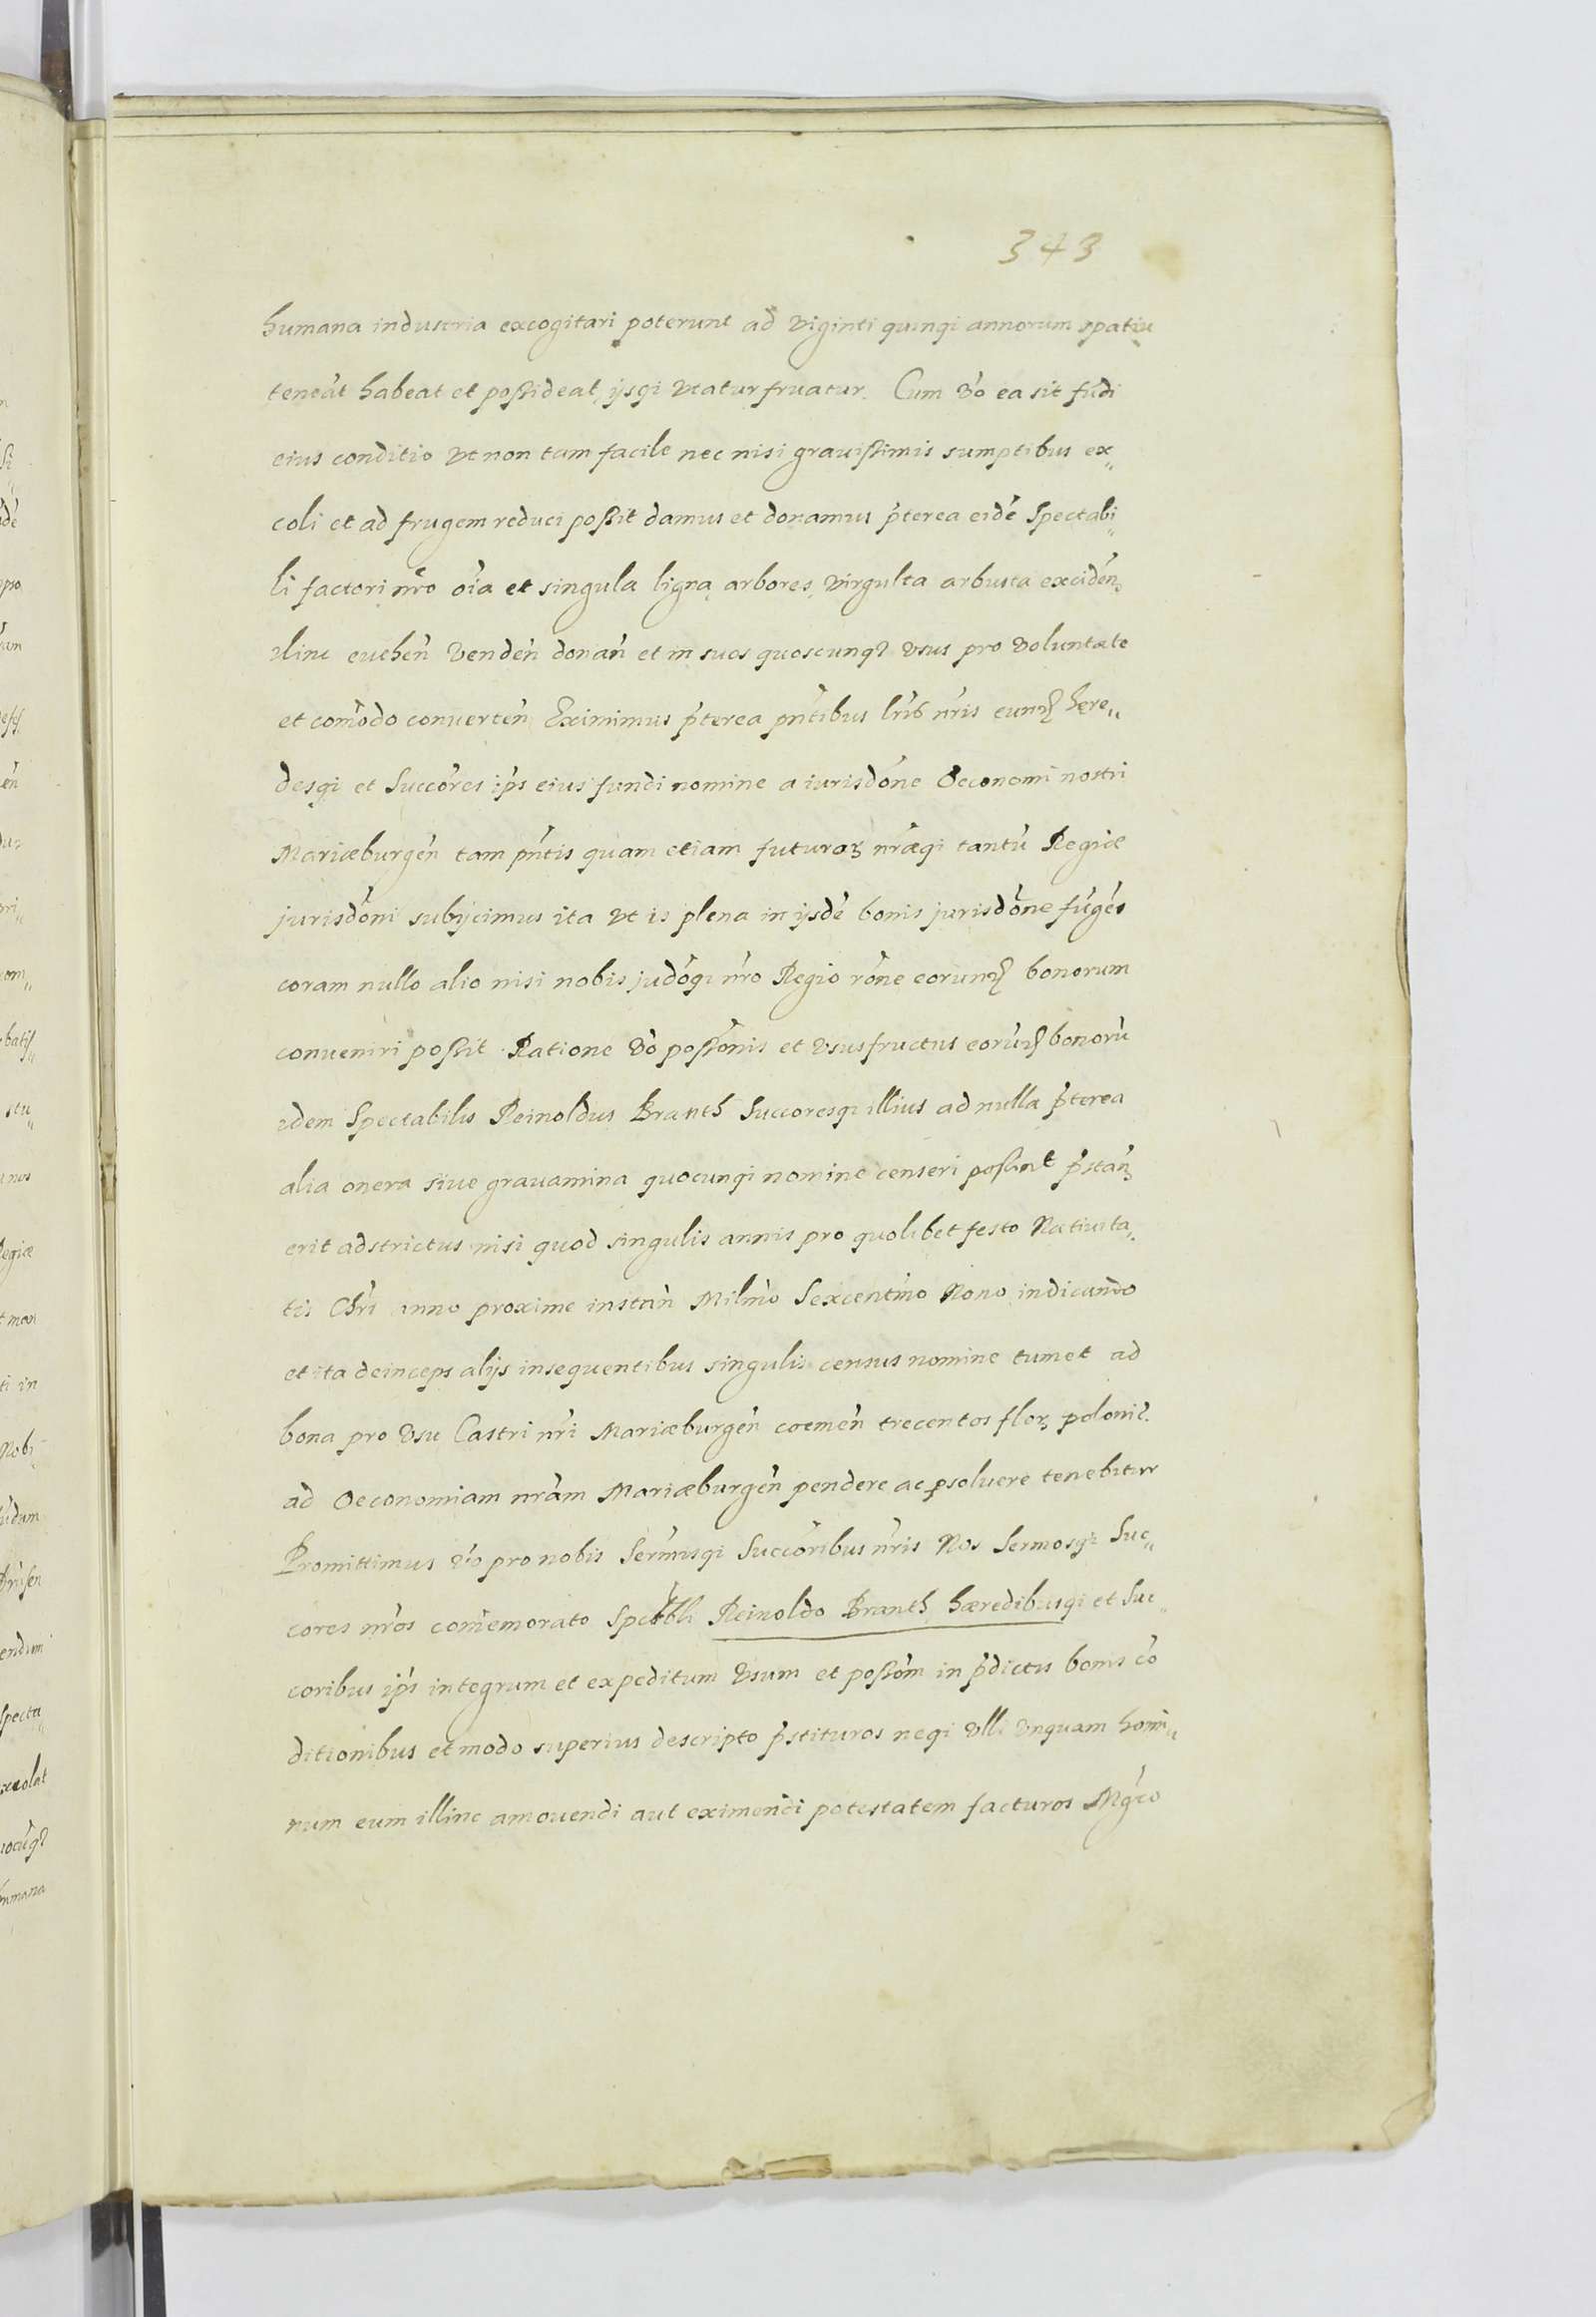 343
humana industria excogitari poterunt ad viginti quinqi annorum spatiu
teneat habeat et possideat, ijsqi vtatur fruatur. Cum vo ea sit fūdi
eius conditio vt non tam facile nec nisi grauissimis sumptibus ex„
coli et ad frugem reduci possit damus et donamus pterea eidē Spectabi„
li factori nro oīa et singula ligna, arbores, virgulta arbusta exciden,
illinc euehen venden donan et in suos quoscunq3 vsus pro voluntate
et comodo conuerten Eximimus pterea pntibus lrīs nris eund here„
desqi et Succores ips eius fundi nomine a iurisdone Oeconomi nostri
Mariæburgen tam pntis quam etiam futuror nræqi tantū Regiæ
jurisdoni subijcimus ita vt is plena in ijsdē bonis jurisdone fūges
coram nullo alio nisi nobis judoqi nro Regio rone eorund bonorum
conueniri possit Ratione vo possonis et vsusfructus eorūd bonorū
idem Spectabilis Reinoldus Branth Succoresqi illius ad nulla pterea
alia onera siue grauamina quocunqi nomine censeri possint pstan
erit adstrictus nisi quod singulis annis pro quolibet festo Natiuita„
tis Chri anno proxime instan Milmo Sexcentmo Nono indicando
et ita deinceps alijs insequentibus singulis census nomine tum et ad
bona pro vsu Castri nri Mariæburgen coemen trecentos flor polonic.
ad Oeconomiam nram Mariæburgen pendere ac psoluere tenebitur
Promittimus vo pro nobis Sermisqi Succoribus nris Nos Sermosq3 Suc„
cores nros comemorato Spctbli Reinoldo Branth hæredibusqi et Suc„
coribus ips integrum et expeditum vsum et possom in pdictis bonis co
ditionibus et modo superius descripto pstituros neqi vlli vnquam homi„
num eum illinc amouendi aut eximendi potestatem facturos Mgco